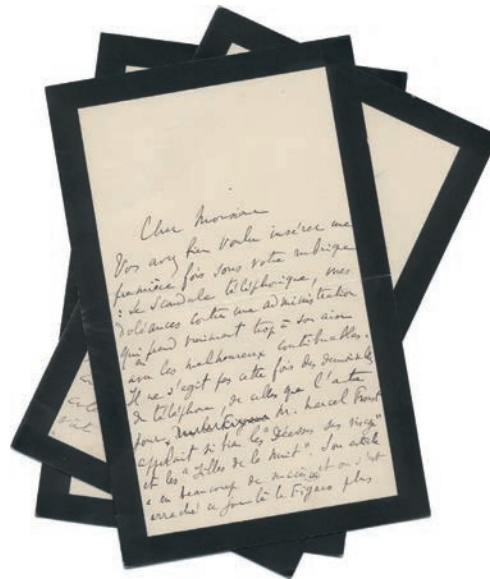 Cher Monsieur
Vous avez bien voulu insérer une
première fois sous votre rubrique
: Le Scandale téléphonique, mes
doléances contre une administration
qui prend vraiment trop à son aise
avec les malheureux contribuables.
Il ne s'agit pas cette fois des demoiselles
de téléphone, de celles que l'autre
jour, M. Marcel Proust
appelait si bien les "Déesses sans visage"
et les "Filles de la nuit". Son article
a eu beaucoup de succès et on s'est
arraché ce jour là le Figaro plus